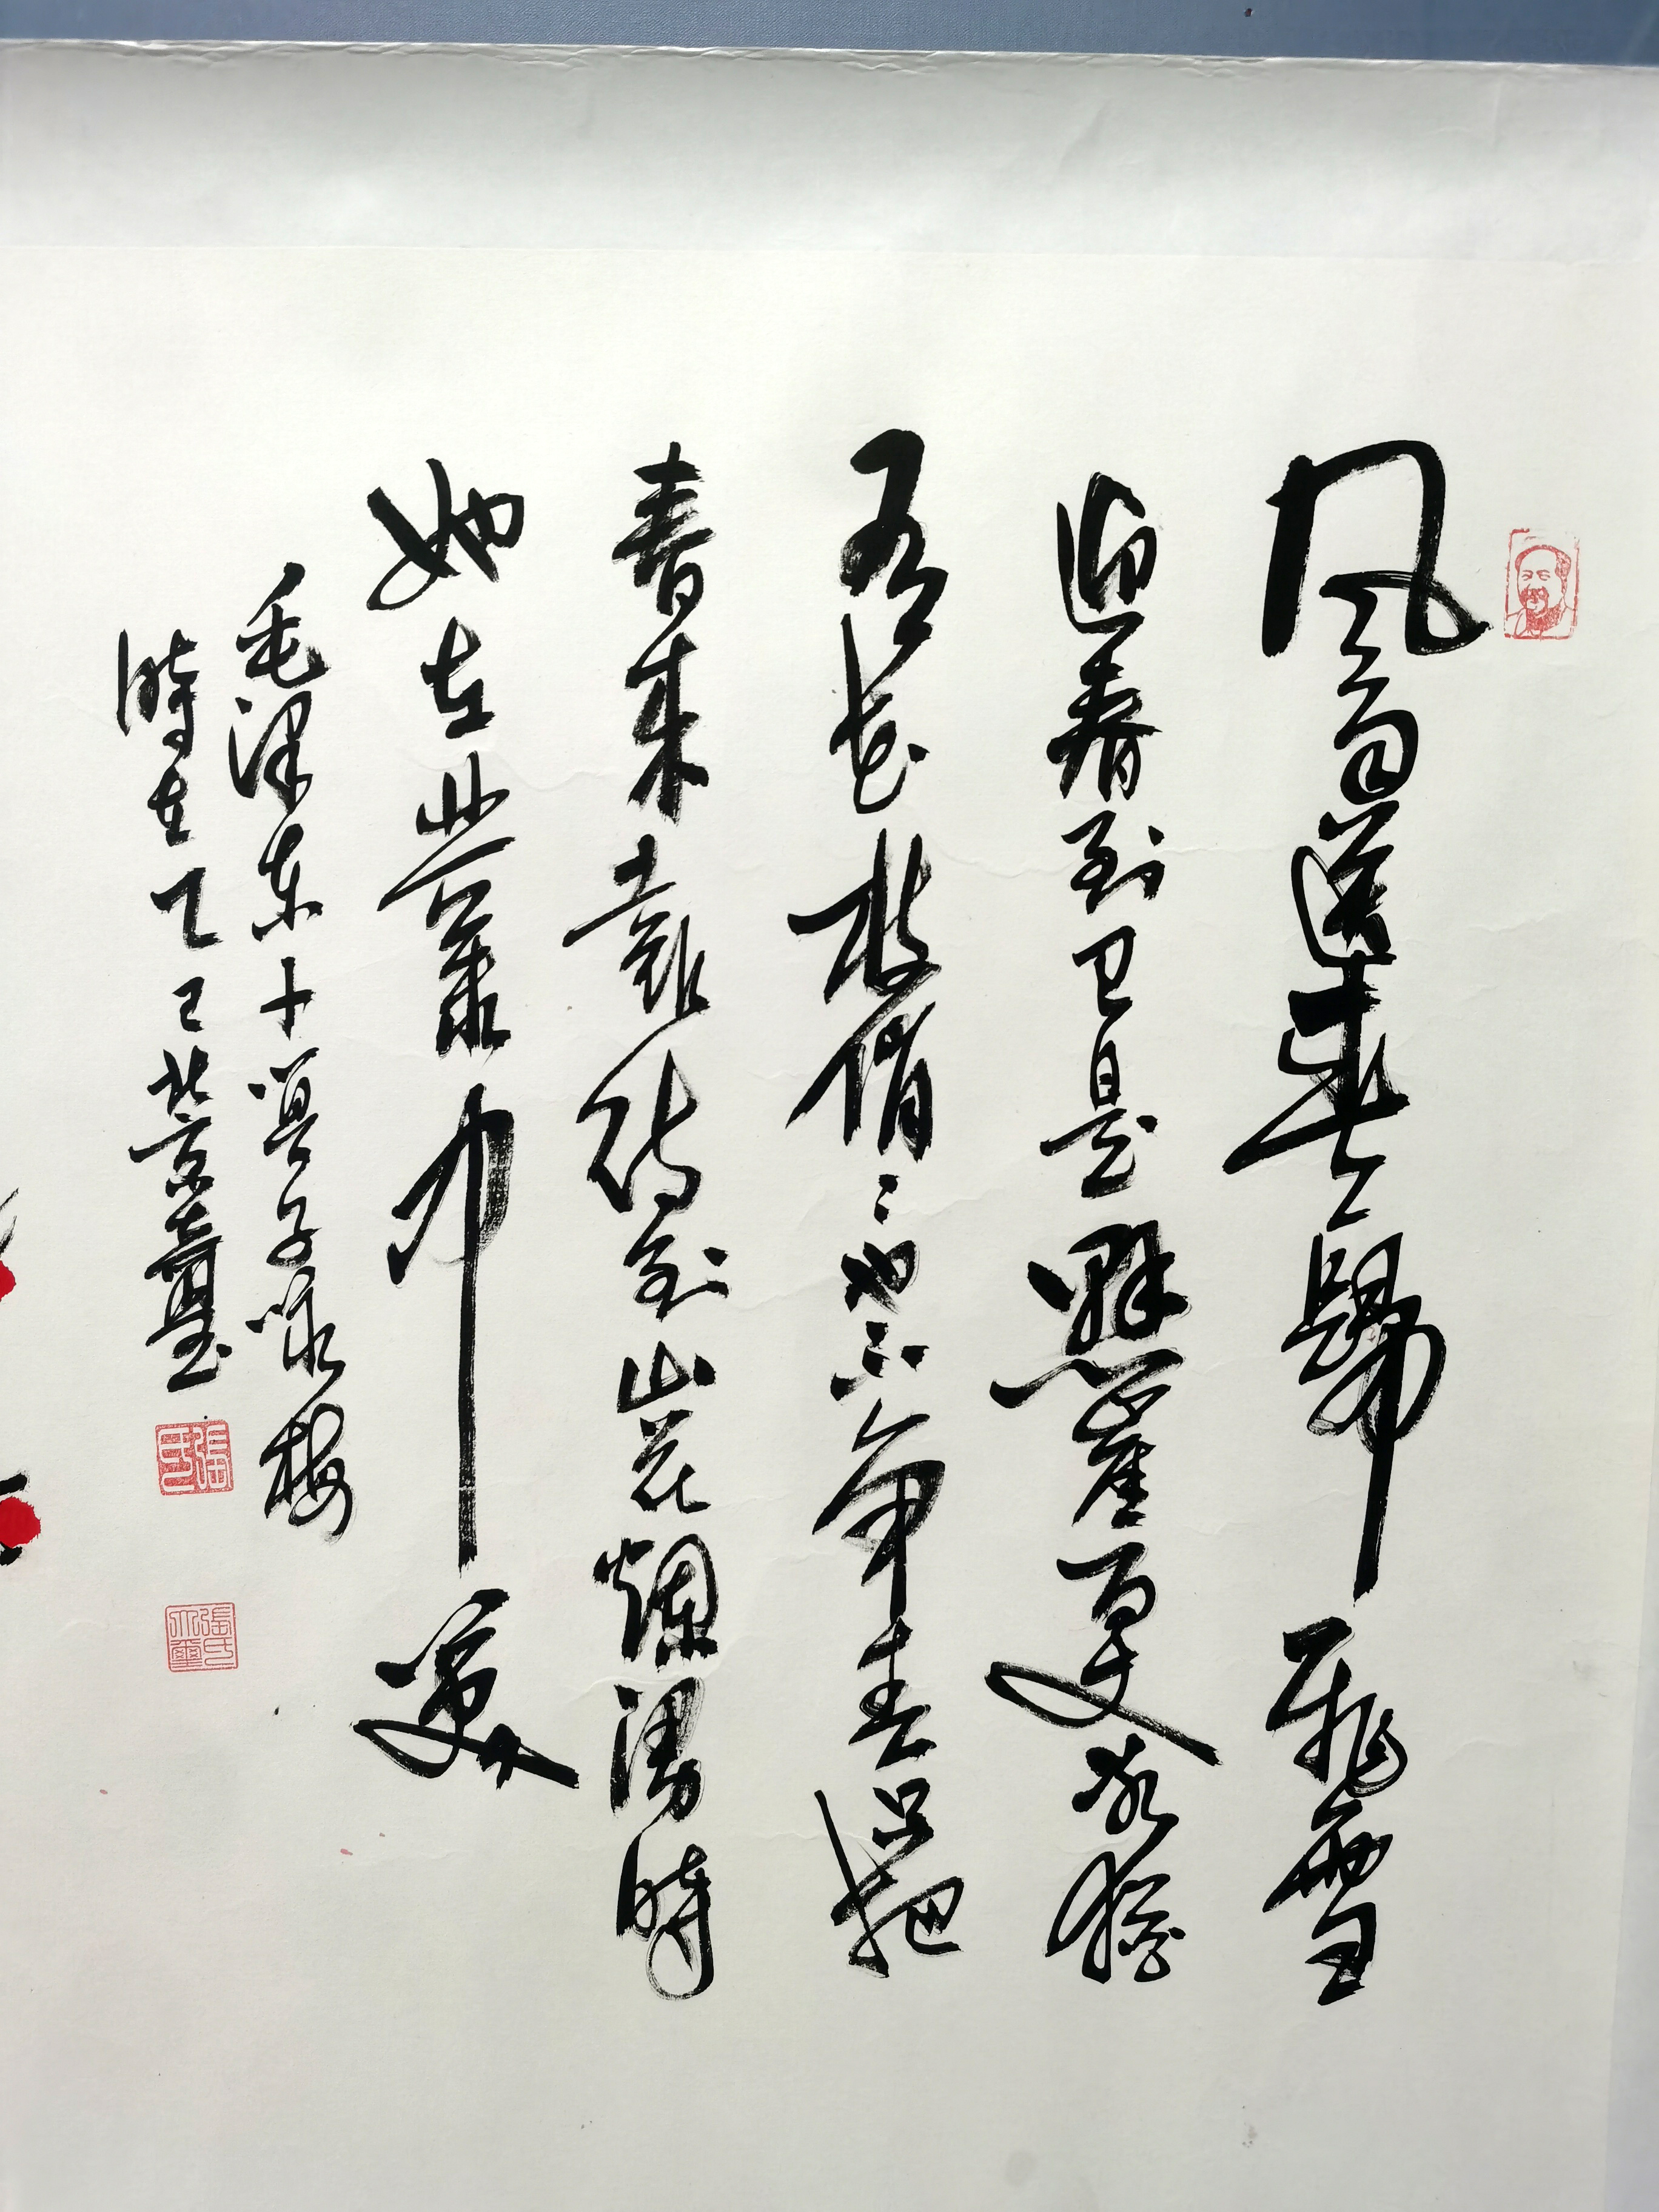 风雨送春歸飛雪
迎春到已是懸崖百丈冰猶
有花枝俏々也不争春只把
春来報待到山花爛漫時
她在叢中笑
毛泽东卜算子咏梅
時在乙巳北京